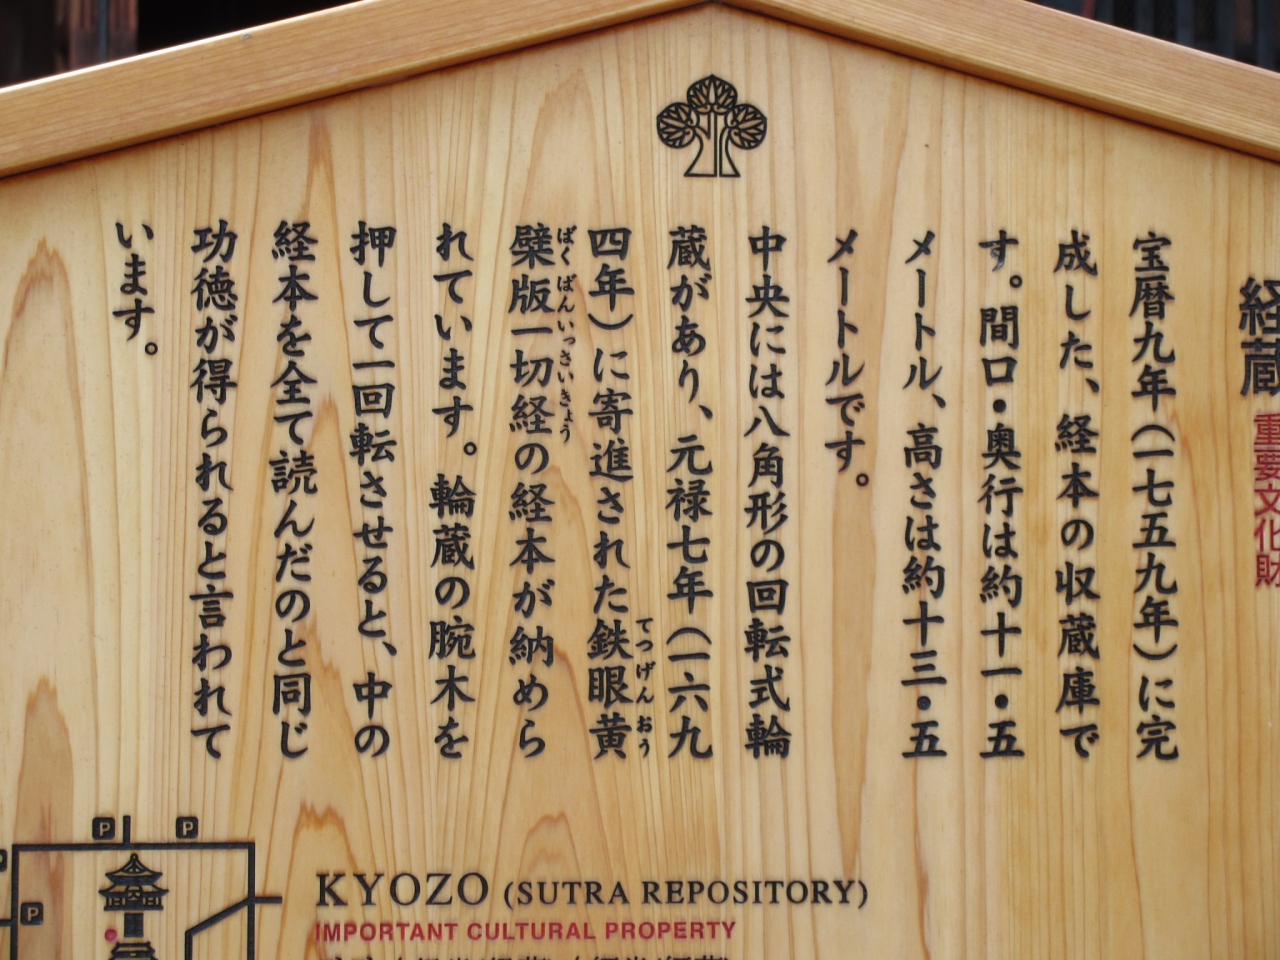 経蔵 重要文化財
宝暦九年(一七五九年)に完
成した、経本の収蔵庫で
す。間口・奥行は約十一・五
メートル、高さは約十三・五
メートルです。
中央には八角形の回転式輪
蔵があり、元禄七年(一六九
四年)に寄進された鉄眼黄
てつげんおう
檗版一切経の経本が納めら
ばくばんいっさいきょう
れています。輪蔵の腕木を
押して一回転させると、中の
経本を全て読んだのと同じ
功徳が得られると言われて
います。
P P
P
KYOZO (SUTRA REPOSITORY)
IMPORTANT CULTURAL PROPERTY